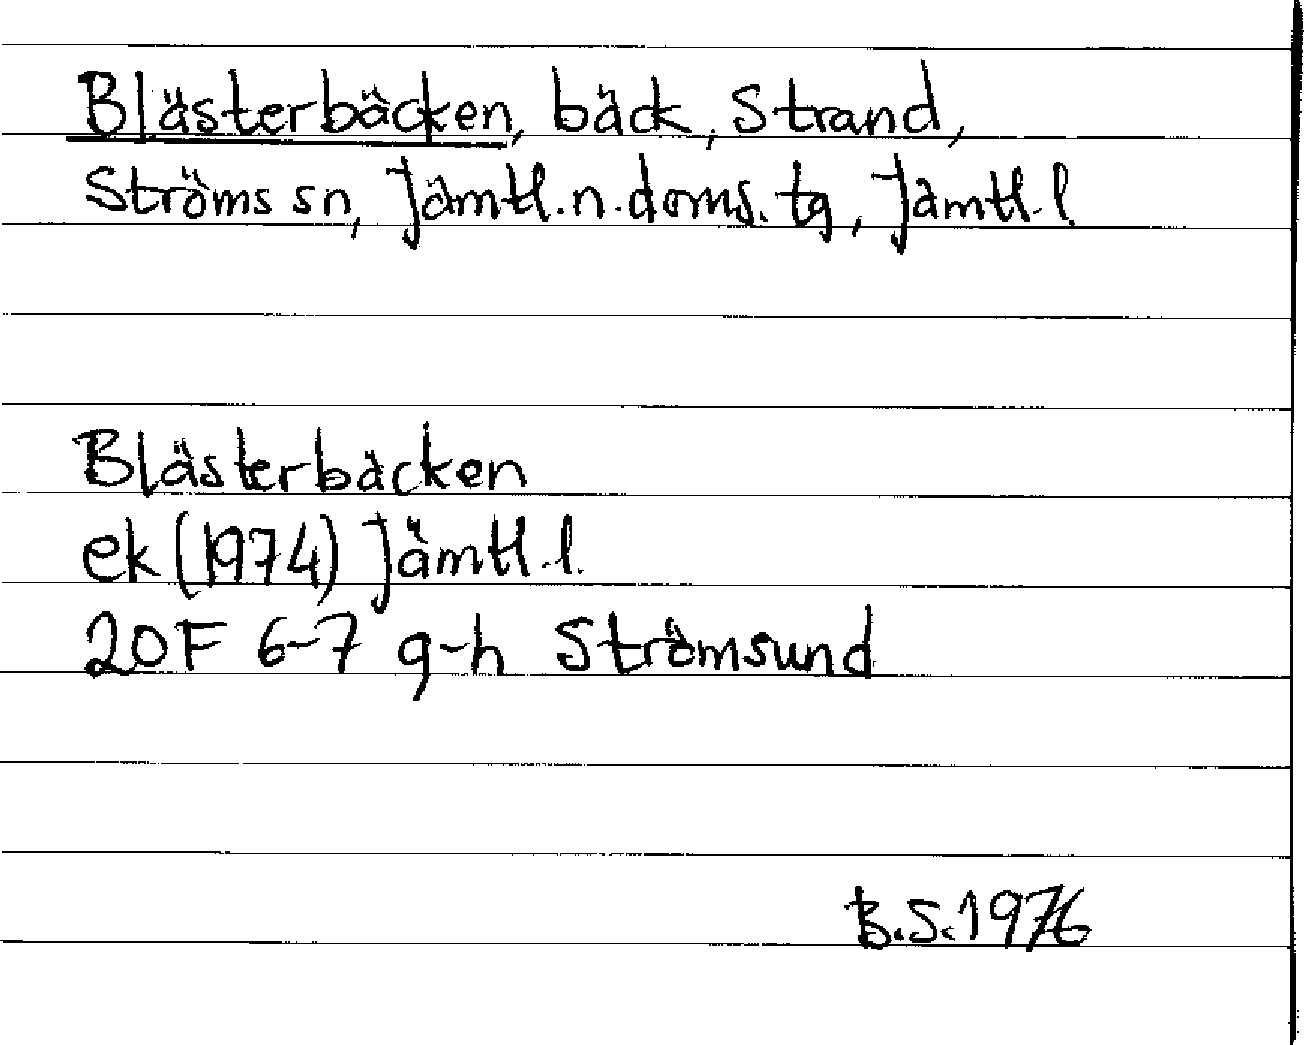 Blästerbäcken, bäck, Strand,
Ströms sn, Jämtl.n.doms.tg, Jämtl.l
Blästerbäcken
ek (1974) Jämtl.l.
20F 6-7 g-h Strömsund
B.S.1976